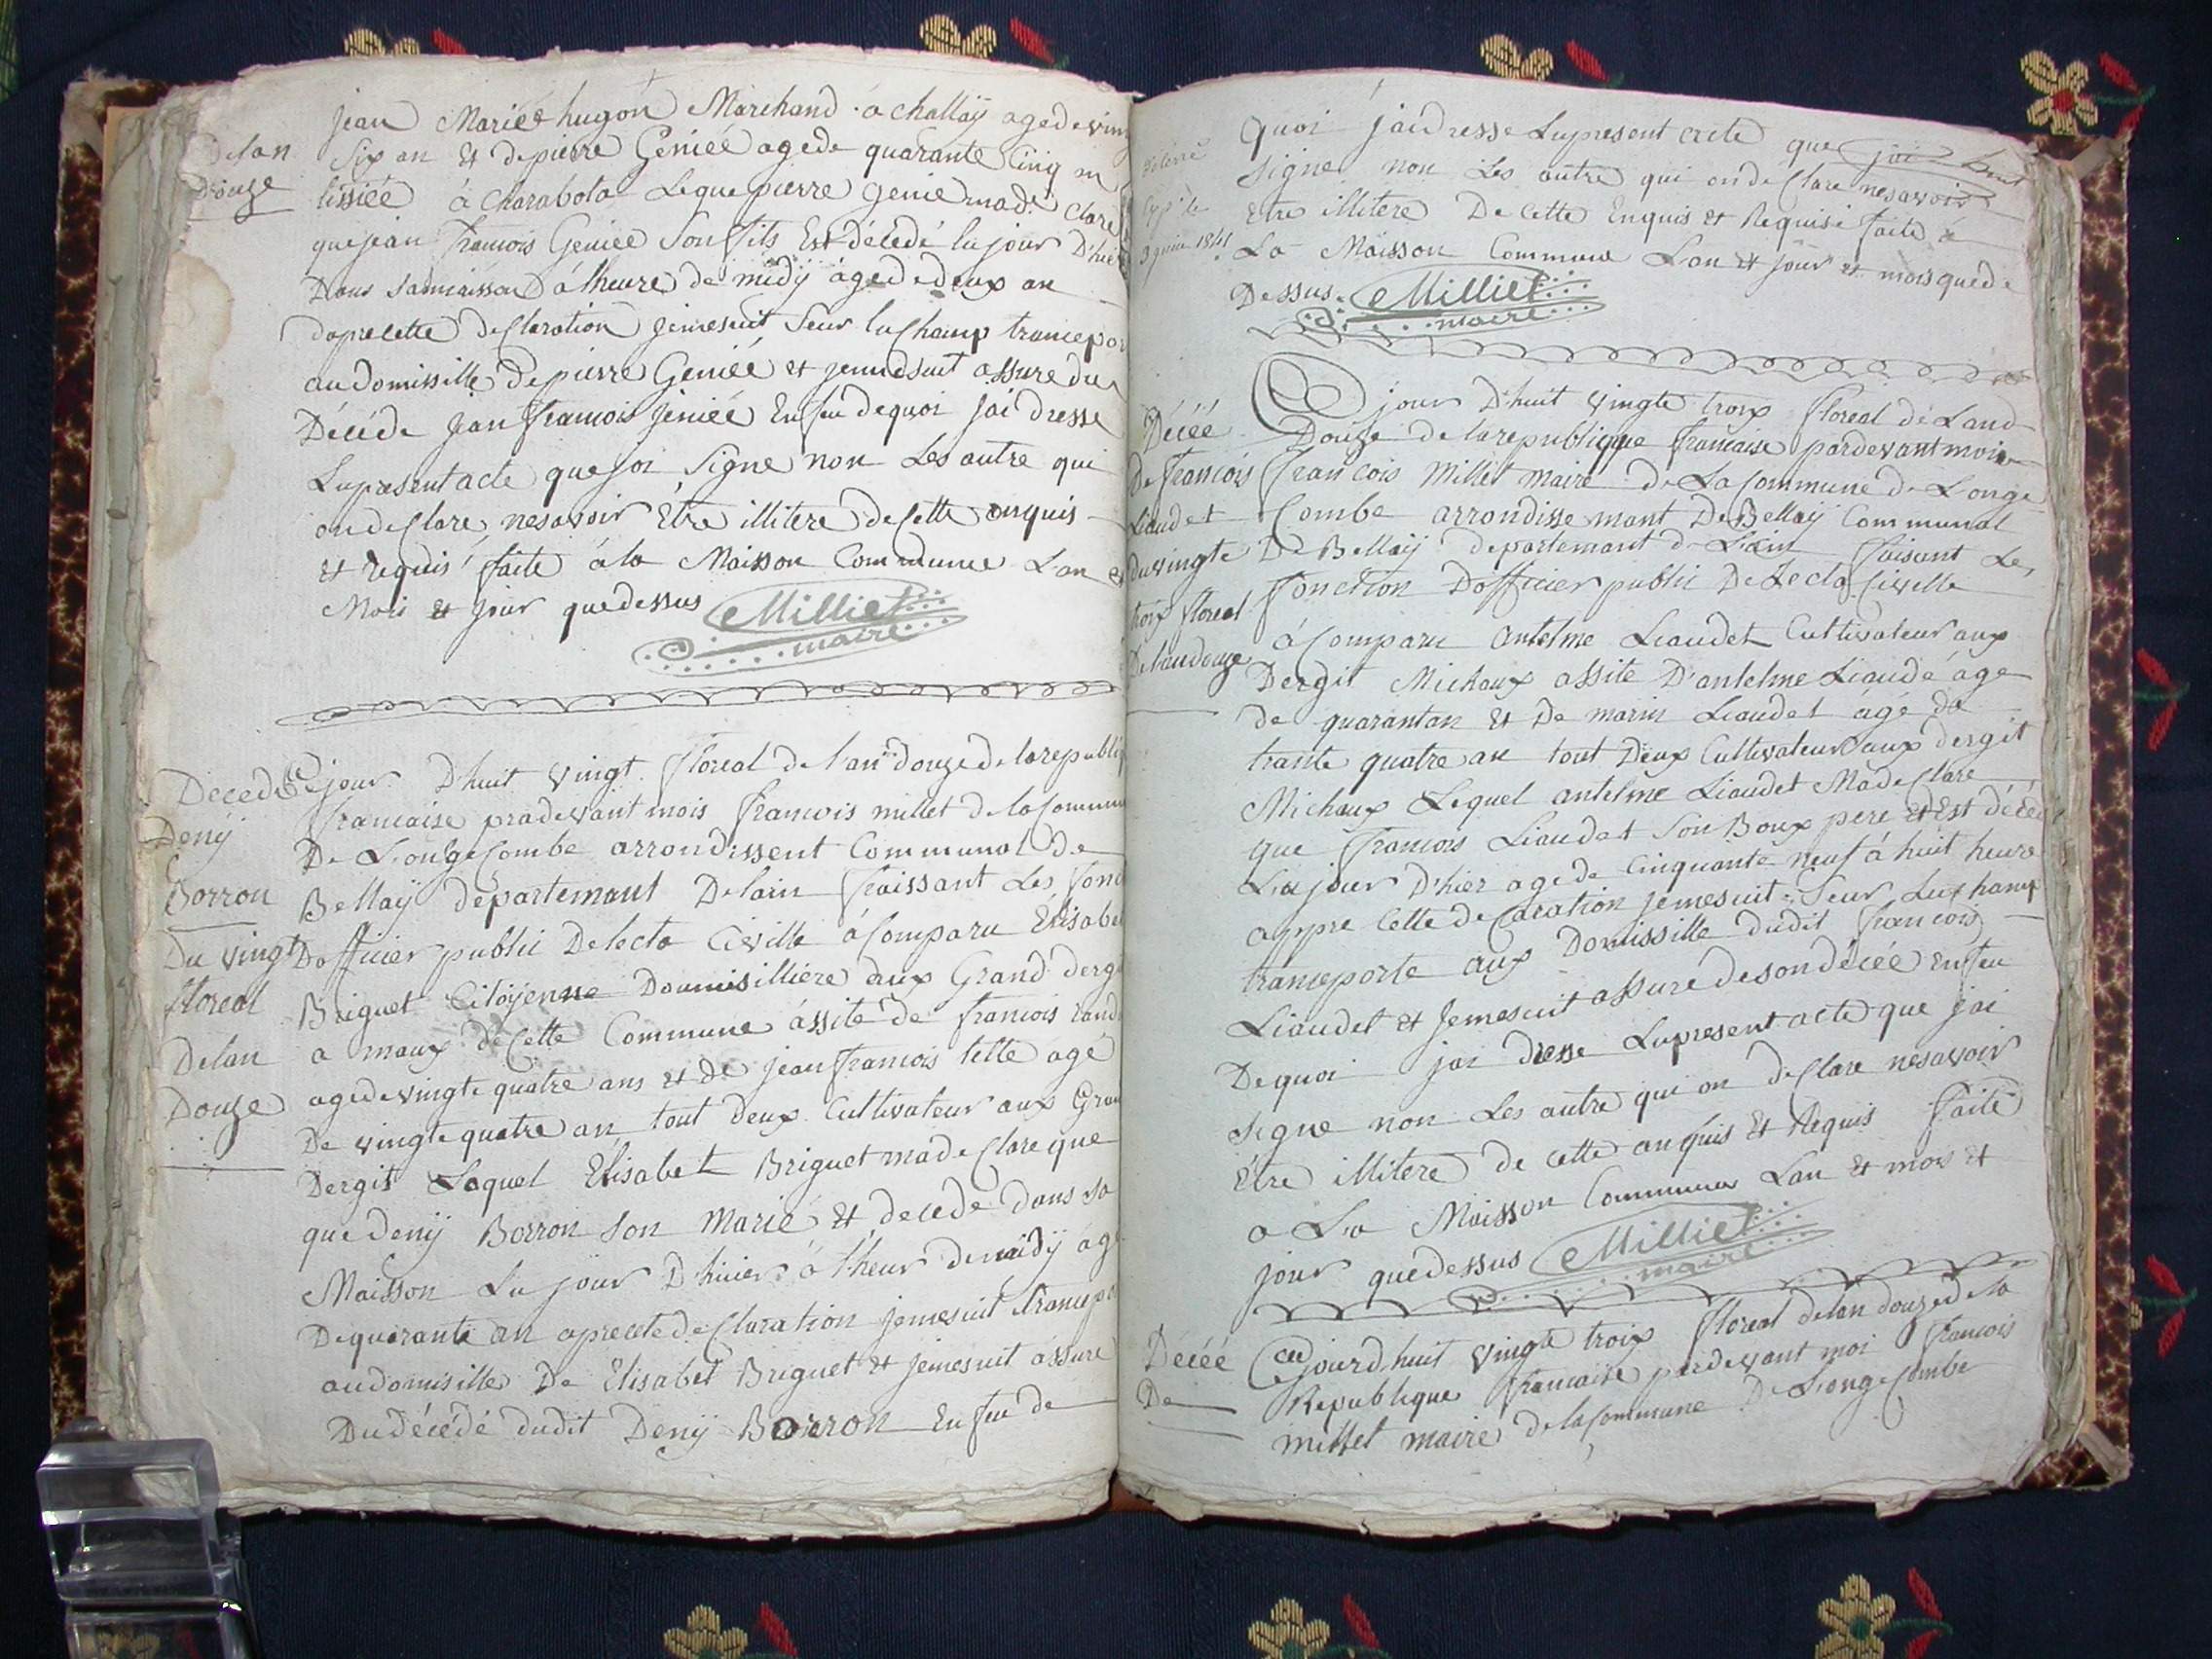 jean Marie hugon Marchand à challaÿ aged e vin
Delan
Douze
Six an Et de pierre Geniéé agede quarante Cinq
lissiée à charabota Leque pierre genie made clare
que jean francois Geniée Son fils Est décedé lu jour D'hier
Dans samaisson à lheure de midÿ âged edeux an
daprecette declaration jemesuit Seur luChamp trancepor
audomissille de pierre Geniéé et jemesuit assure du
Décéde jean francois jeniéé Enfeu dequoi jai dresse
Lupresentacte que joi Signe non Les autre qui
ondeClare nesavoir Etre illitere de Cette enquis
et requis faite à la Maisson Commune Lan et
Mois et jour quedessus Milliet
maire
Décéde
Denÿ
Borron
Du vingt
floreal
Delan
Douze
Ce jour D'huit vingt floreal de l'an douze de larepubliq
francaise pradevant mois francois millet de laCommun
De LongeCombe arrondissent Communal De
Bellaÿ departemant Delain faissant Les fonc
Dofficier public Delecta Civille àComparu Elisabet
Briguet Citoÿenne Doumisilliere aux Grand dergi
a maux deCette Commune àssité de francois
agedevingte quatre ans et de jeanfrancois telle agé
De vingte quatre an tout deux Cultivateur aux Gran
Dergit Laquel Elisabet Briguet madeClare que
que denÿ Borron Son Marié et decede dans sa
Maisson Lu jour D'hier à l'heur demidÿ age
Dequarante an aprecete deClaration jemesuit trancepo
audomisille De Elisabet Briguet et jemesuit assure
Du décédé dudit Denÿ Borron Enfeu de
Quoi jaidresse Lupresent acte que joi
Signe non Les autre qui ondeClare nesavoir
Etre illitere De Cette Enquis et Requis faite à
La Maisson Commune Lan et jour et mois quede
Dessus Milliet
maire
1841
Décéé
De francois
Liaudet
du vingte
troix floreal
Delandouze
Ce jour D'huit vingte troix floreal de Land
Douze de larepublique francaise pardevant mois
francois Millet maire de La Commune de Longe
Combe arrondissemant De Bellaÿ Communal
De Bellaÿ departemant de Lain faisant Les
fonction Dofficier public De Lecta Civille
à Comparu antelme Liaudet Cultivateur aux
Dergit Michaux assite D'antelme Liaudé áge
de quarantan et De marin Liaudet âgé de
trante quatre an tout Deux Cultivateur aux dergit
Michaux Lequel antelme Liaudet MadeClare
que francois Liaudet Son Boux pere et Est décéde
Lu jour D'hier agede Cinquante neuf à huit heure
appre Cette deClaration jemesuit Seur Luchamp
tranceporte aux Domissille dudit francois
Liaudet et Jemesuit assuré de son décéé enfeu
Dequoi jai dresse Lupresent acte que jai
Signe non Les autre qui on deClare nesavoir
Etre illitere de cette anquis et Requis faite
a La Maisson Commune Lan et mois et
jour quedessus Milliet
maire
Décéé
De
Cejourd'huit vingte troix floreal delan douze de la
Republique francaise pardevant moi francois
millet maire delaCommune De Longe Combe